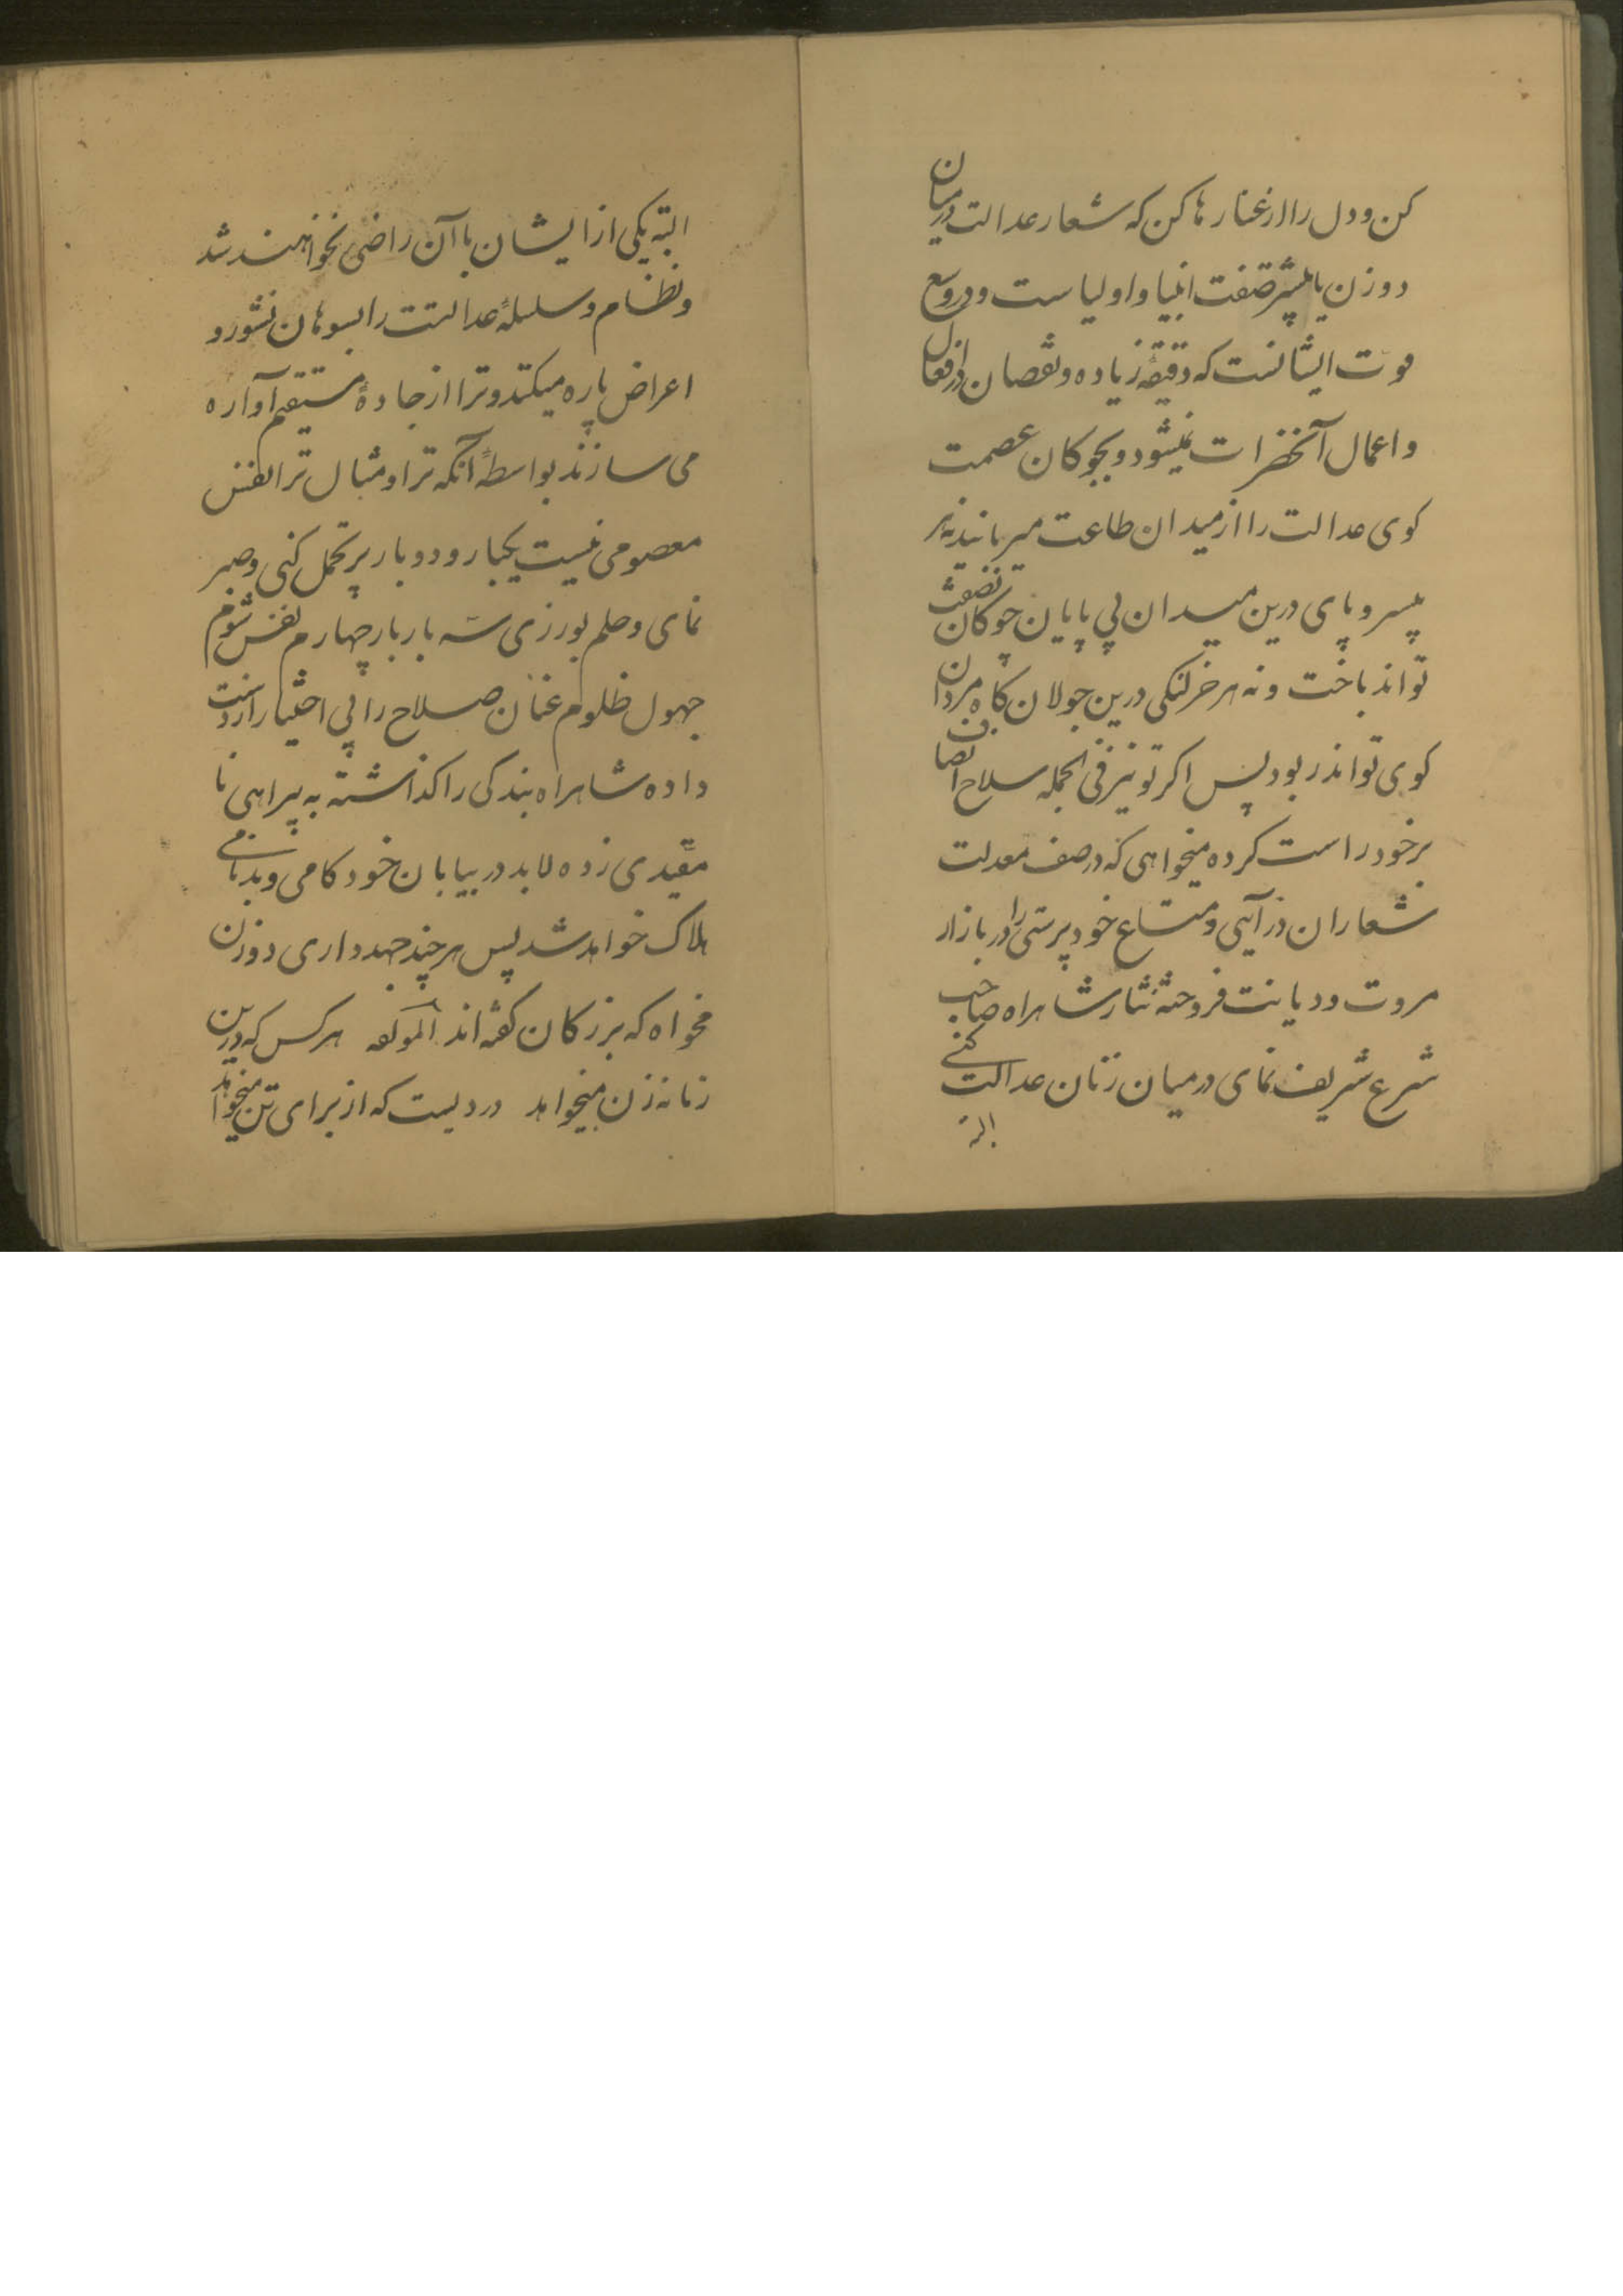 کن و دل را از غنار ها کن که شعار عدالت در میان
دو زن یا بیشتر صفت انبیا و اولیاست و در وسع
موت ایشانست که دقیقهٔ زیاده و نقصان در افعال
و اعمال آنحضرات نمیشود و بچوکان عصمت
کوی عدالت را از میدان طاعت میربانید نه هر
بیسر و پای درین میدان بی پایان چوکان نصفت
تواند باخت و نه هر خر لنکی درین جولان کاه مردان
کوی تواند ربود پس اکر تو نیز فی الجمله سلاح انصاف
بر خود راست کرده میخواهی که در صف معدلت
شعاران در آیی و متاع خود پرستی را در بازار
مروت و دیانت فروخته نثار شاهراه صاحب
شرع شریف نمای در میان زنان عدالت کنی
البته
البته یکی از ایشان باآن راضی نخواهند شد
و نظام و سلسلهٔ عدالتت را بسوهان نشور و
اعراض پاره میکند و ترا از جادهٔ مستقیم آواره
می سازند بواسطهٔ آنکه ترا و مثال ترا نفس
معصومی نیست یکبار و دو بار بر تحمل کنی و صبر
نمای و حلم بورزی سه بار بار چهارم نفس شوم
جهول ظلوم عنان صلاح را بی اختیار از دست
داده شاهراه بندکی را کذاشته به بیراهی نا
مقیدی زده لابد در بیابان خود کامی و بدنامی
هلاک خواهد شد پس هر چند جهد داری دو زن
مخواه که بزرکان کفته اند المولفه هر کس که درین
زمانه زن میخواهد دردیست که از برای تن میخواهد